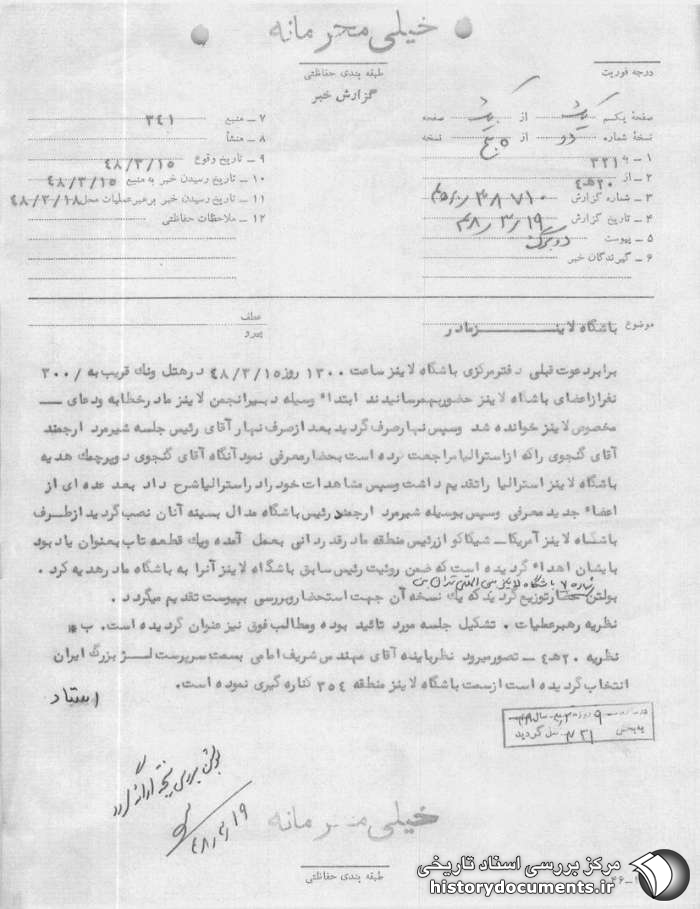 خیلی محرمانه
طبقه بندی حفاظتی
گزارش خبر
درجه فوریت
صفحهٔ یکم یک از یک صفحه
نسخهٔ شماره دو از پنج نسخه
۱ ـ به ۳۲۱
۲ ـ از ۲۰هـ۴
۳ ـ شماره گزارش
۴ ـ تاریخ گزارش ۴۸/۳/۱۹
۵ ـ پیوست دو برگ
۶ ـ گیرندگان خبر
۷ ـ منبع ۳۴۱
۸ ـ منشأ
۹ ـ تاریخ وقوع ۴۸/۳/۱۵
۱۰ ـ تاریخ رسیدن خبر به منبع ۴۸/۳/۱۵
۱۱ ـ تاریخ رسیدن خبر برهبر عملیات محل ۴۸/۳/۱۸
۱۲ ـ ملاحظات حفاظتی
موضوع باشگاه لاینز مادر
عطف
پیرو
برابر دعوت قبلی دفتر مرکزی باشگاه لاینز ساعت ۱۳۰۰ روز ۴۸/۳/۱۵ در هتل ونک قریب به ۳۰۰/
نفر از اعضای باشگاه لاینز حضور بهم رسانیدند ابتداء وسیله دبیر انجمن لاینز مادر خطابه ودعای
مخصوص لاینز خوانده شد وسپس نهار صرف گردید بعد از صرف نهار آقای رئیس جلسه شیرمرد ارجمند
آقای گنجوی را که از استرالیا مراجعت کرده است بحضار معرفی نمود آنگاه آقای گنجوی دو پرچمک هدیه
باشگاه لاینز استرالیا را تقدیم داشت وسپس مشاهدات خود را در استرالیا شرح داد بعد عده ای از
اعضاء جدید معرفی وسپس بوسیله شیرمرد ارجمند رئیس باشگاه مدال بسینه آنان نصب گردید از طرف
باشگاه لاینز آمریکا ـ شیکاگو از رئیس منطقه مادر قدردانی بعمل آمده ویک قطعه تاب بعنوان یاد بود
بایشان اهداء گردیده است که ضمن روئیت رئیس سابق باشگاه لاینز آنرا به باشگاه مادر هدیه کرد .
شماره ۷ باشگاه لاینز بین المللی تهران
بولتن بحضار توزیع گردید که یک نسخه آن جهت استحضار وبررسی بپیوست تقدیم میگردد .
نظریه رهبر عملیات . تشکیل جلسه مورد تائید بوده ومطالب فوق نیز عنوان گردیده است. ب*
نظریه ۲۰هـ۴ ـ تصور میرود نظر باینکه آقای مهندس شریف امامی بسمت سرپرست لژ بزرگ ایران
انتخاب گردیده است از سمت باشگاه لاینز منطقه ۳۵۴ کناره گیری نموده است.
استاد
گردید
بولتن بررسی نتیجه ارائه گردد
۴۸/۳/۱۹
خیلی محرمانه
طبقه بندی حفاظتی
مرکز بررسی اسناد تاریخی
historydocuments.ir